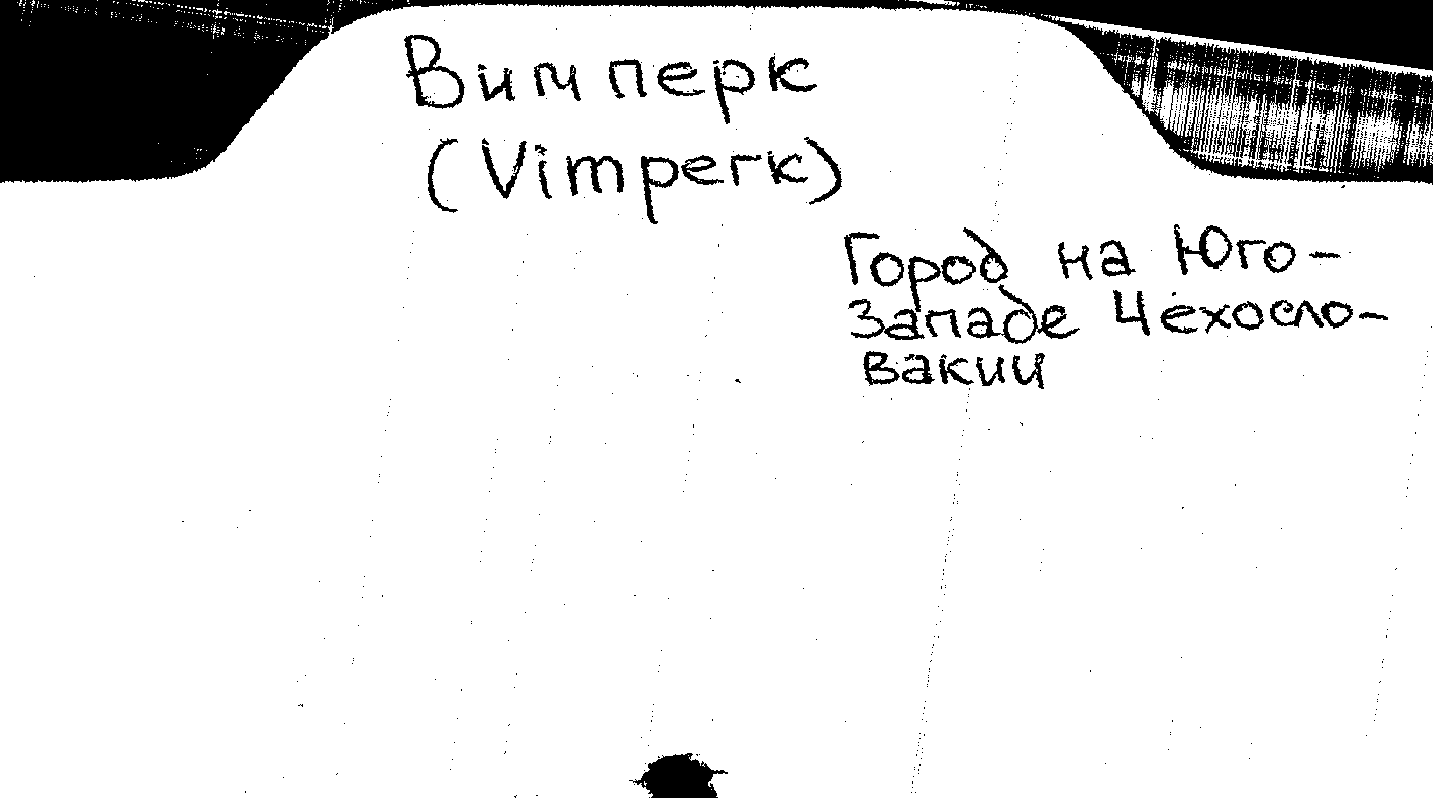 Вимперк
(Vimperk)
Город на Юго-
Западе Чехосло-
вакии